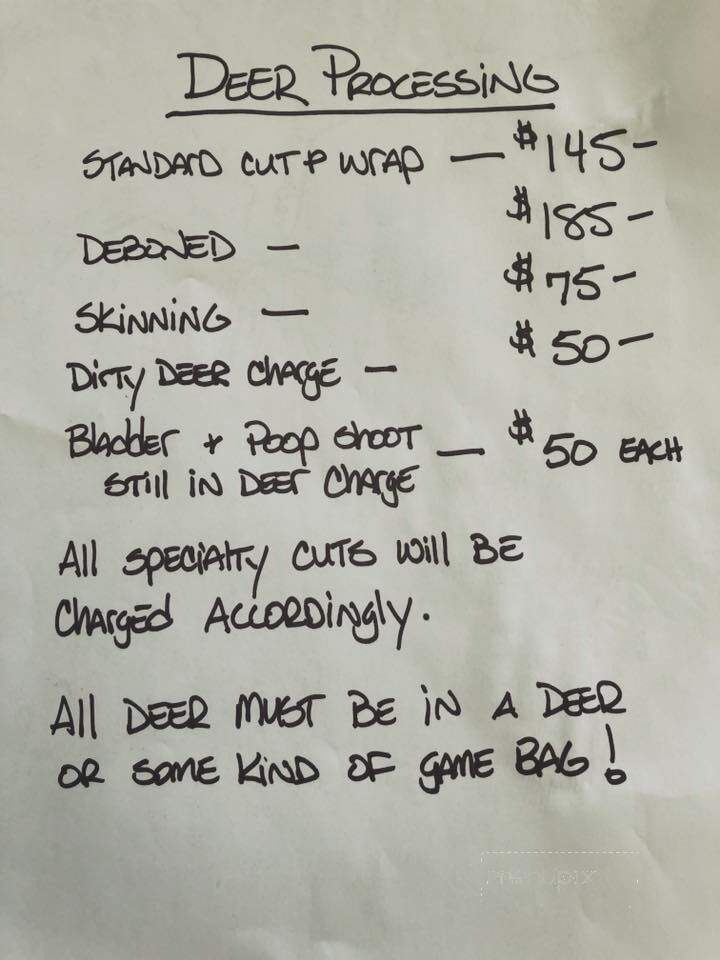 DEER PROCESSING
STANDARD CUT & WRAP — $145-
DEBONED — $185-
SKINNING — $75-
DIRTY DEER CHARGE — $50-
Bladder + Poop shoot — $50 EACH
STILL IN DEER CHARGE
All SPECIALTY CUTS WILL BE
CHARGED ACCORDINGLY.
All DEER MUST BE IN A DEER
OR SOME KIND OF GAME BAG!